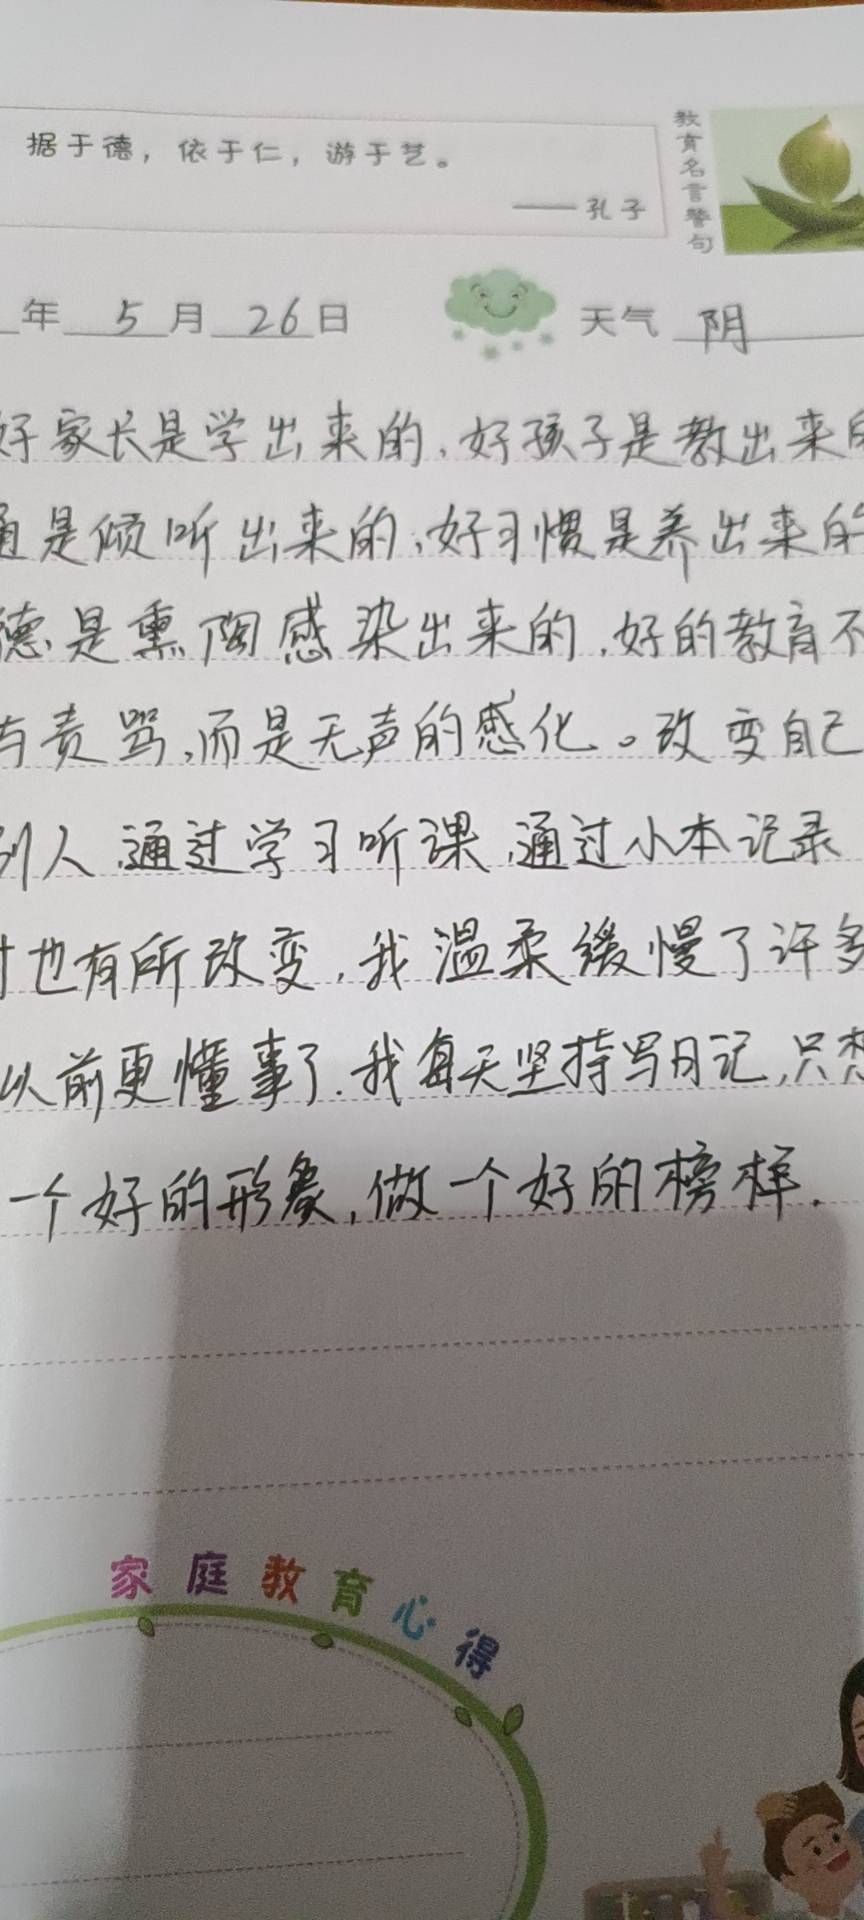 据于德，依于仁，游于艺。
——孔子
教育名言警句
年 5 月 26 日
天气 阴
好家长是学出来的,好孩子是教出来
是倾听出来的,好习惯是养出来的
德是熏陶感染出来的,好的教育不
与责骂,而是无声的感化。改变自己
别人,通过学习听课,通过小本记录
也有所改变,我温柔缓慢了许多
以前更懂事了.我每天坚持写日记,只想
一个好的形象,做一个好的榜样.
家庭教育心得